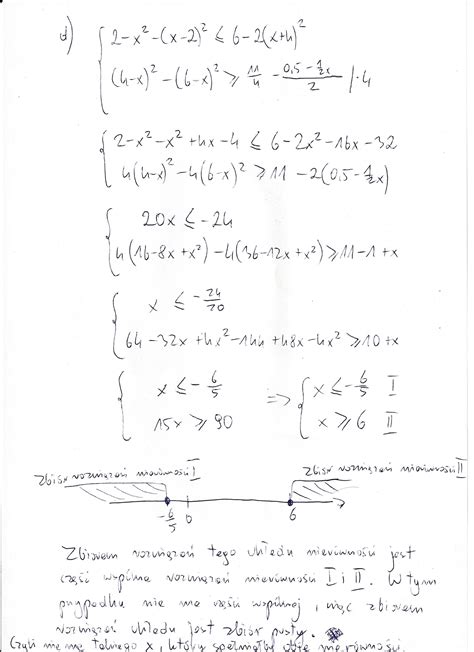 d) { 2-x²-(x-2)² ≤ 6-2(x+4)²
(4-x)² - (6-x)² ≥ 11/4 - (0,5-½x)/2 /·4
{ 2-x²-x²+4x-4 ≤ 6-2x²-16x-32
4(4-x)²-4(6-x)² ≥ 11-2(0,5-½x)
{ 20x ≤ -24
4(16-8x+x²)-4(36-12x+x²) ≥ 11-1+x
{ x ≤ -24/20
64-32x+4x²-144+48x-4x² ≥ 10+x
{ x ≤ -6/5 => { x ≤ -6/5 I
15x ≥ 90 x ≥ 6 II
Zbiór rozwiązań nierówności I Zbiór rozwiązań nierówności II
-6/5 0 6
Zbiorem rozwiązań tego układu nierówności jest
część wspólna rozwiązań nierówności I i II. W tym
przypadku nie ma części wspólnej, więc zbiorem
rozwiązań układu jest zbiór pusty.
Czyli nie ma takiego x, który spełniałby obie nierówności.